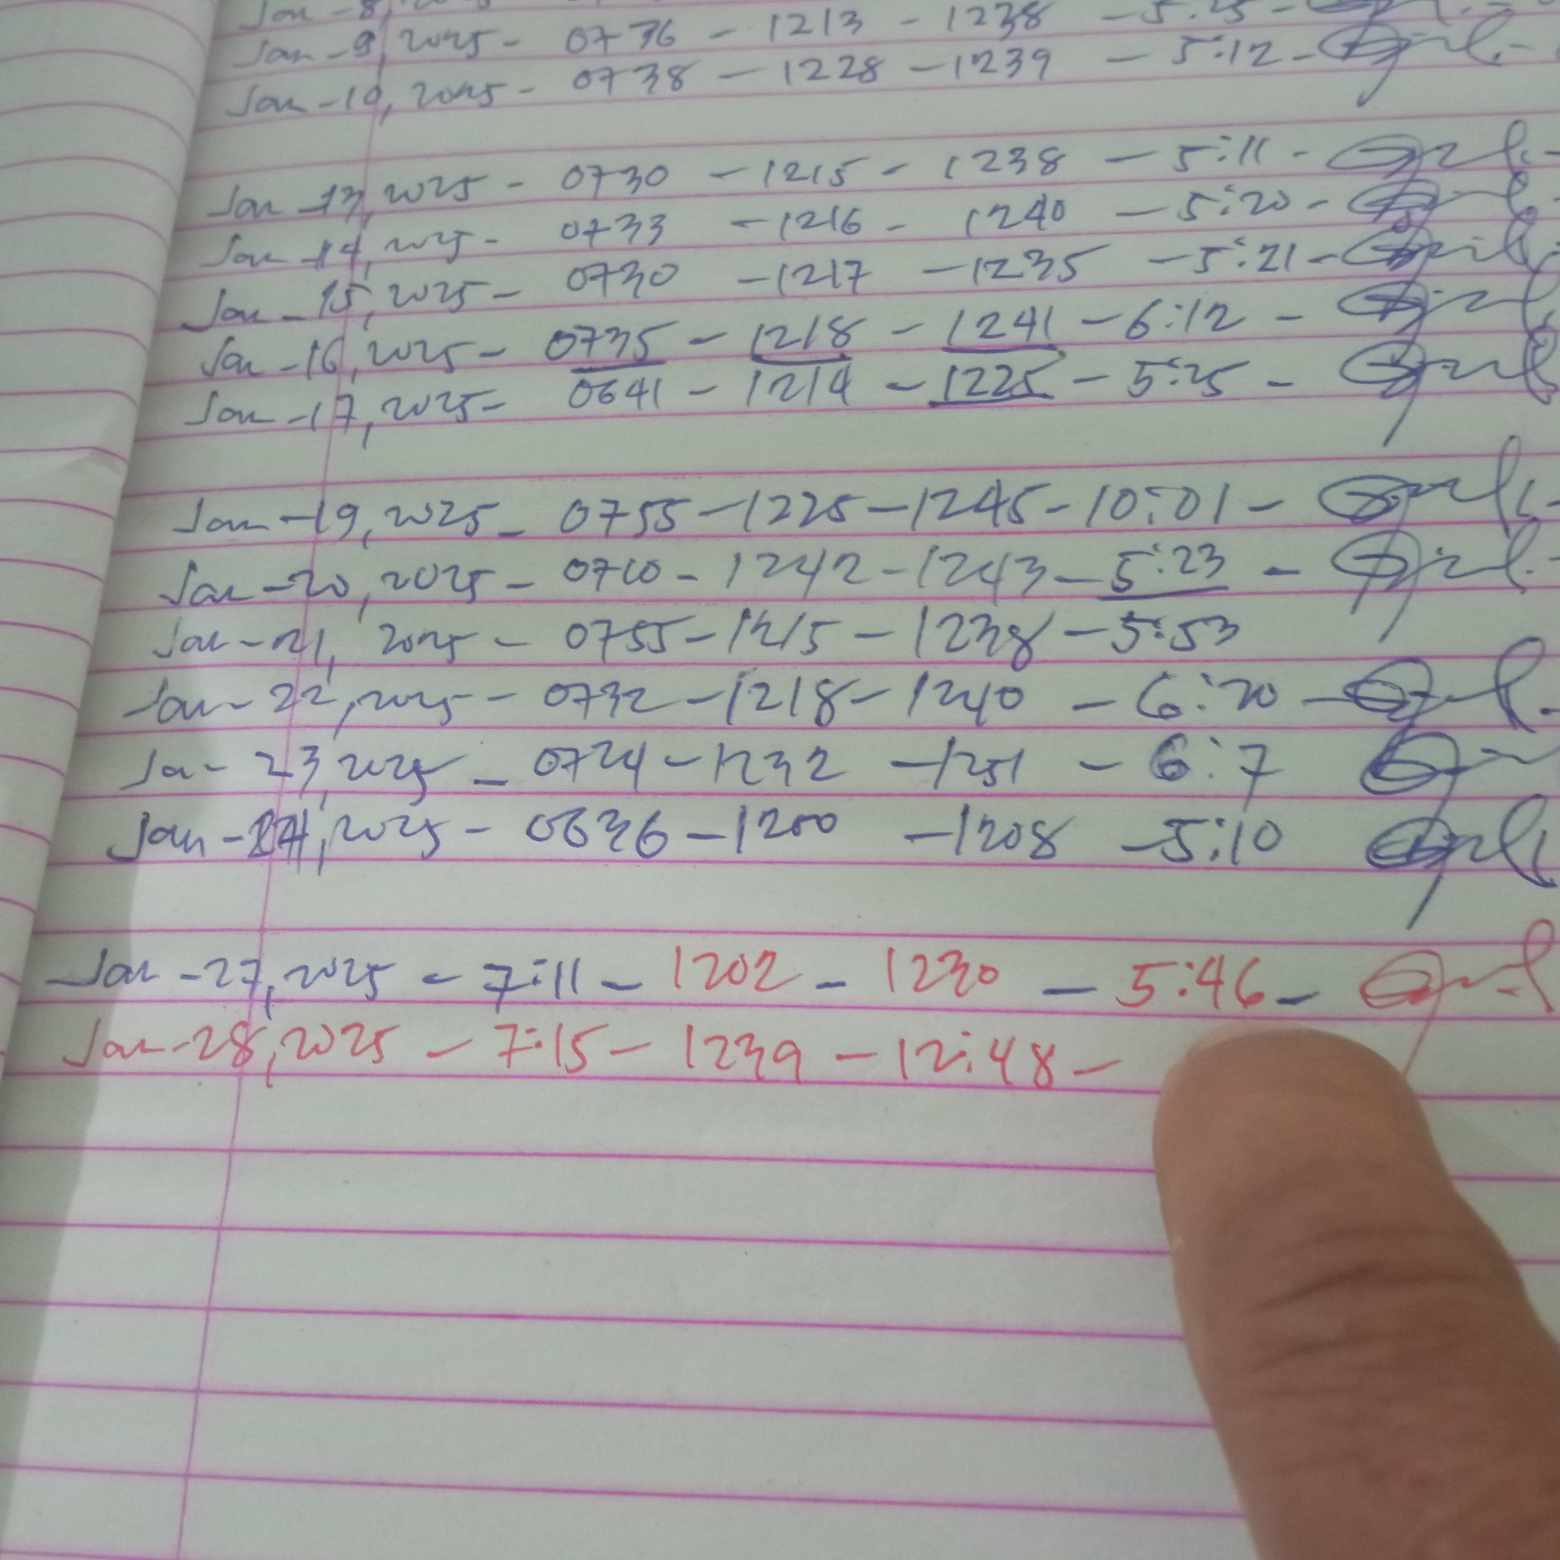 Jan - 8,
Jan - 9, 2025 - 0736 - 1213 - 1238 - 5:25 -
Jan - 10, 2025 - 0738 - 1228 - 1239 - 5:12 -
Jan - 13, 2025 - 0730 - 1215 - 1238 - 5:11 -
Jan - 14, 2025 - 0733 - 1216 - 1240 - 5:20 -
Jan - 15, 2025 - 0730 - 1217 - 1235 - 5:21 -
Jan - 16, 2025 - 0735 - 1218 - 1241 - 6:12 -
Jan - 17, 2025 - 0641 - 1214 - 1225 - 5:25 -
Jan - 19, 2025 - 0755 - 1225 - 1245 - 10:01 -
Jan - 20, 2025 - 0710 - 1242 - 1243 - 5:23 -
Jan - 21, 2025 - 0755 - 1215 - 1238 - 5:53
Jan - 22, 2025 - 0732 - 1218 - 1240 - 6:20 -
Jan - 23, 2025 - 0724 - 1232 - 1251 - 6:7
Jan - 24, 2025 - 0636 - 1200 - 1208 - 5:10
Jan - 27, 2025 - 7:11 - 1202 - 1230 - 5:46 -
Jan - 28, 2025 - 7:15 - 1239 - 12:48 -